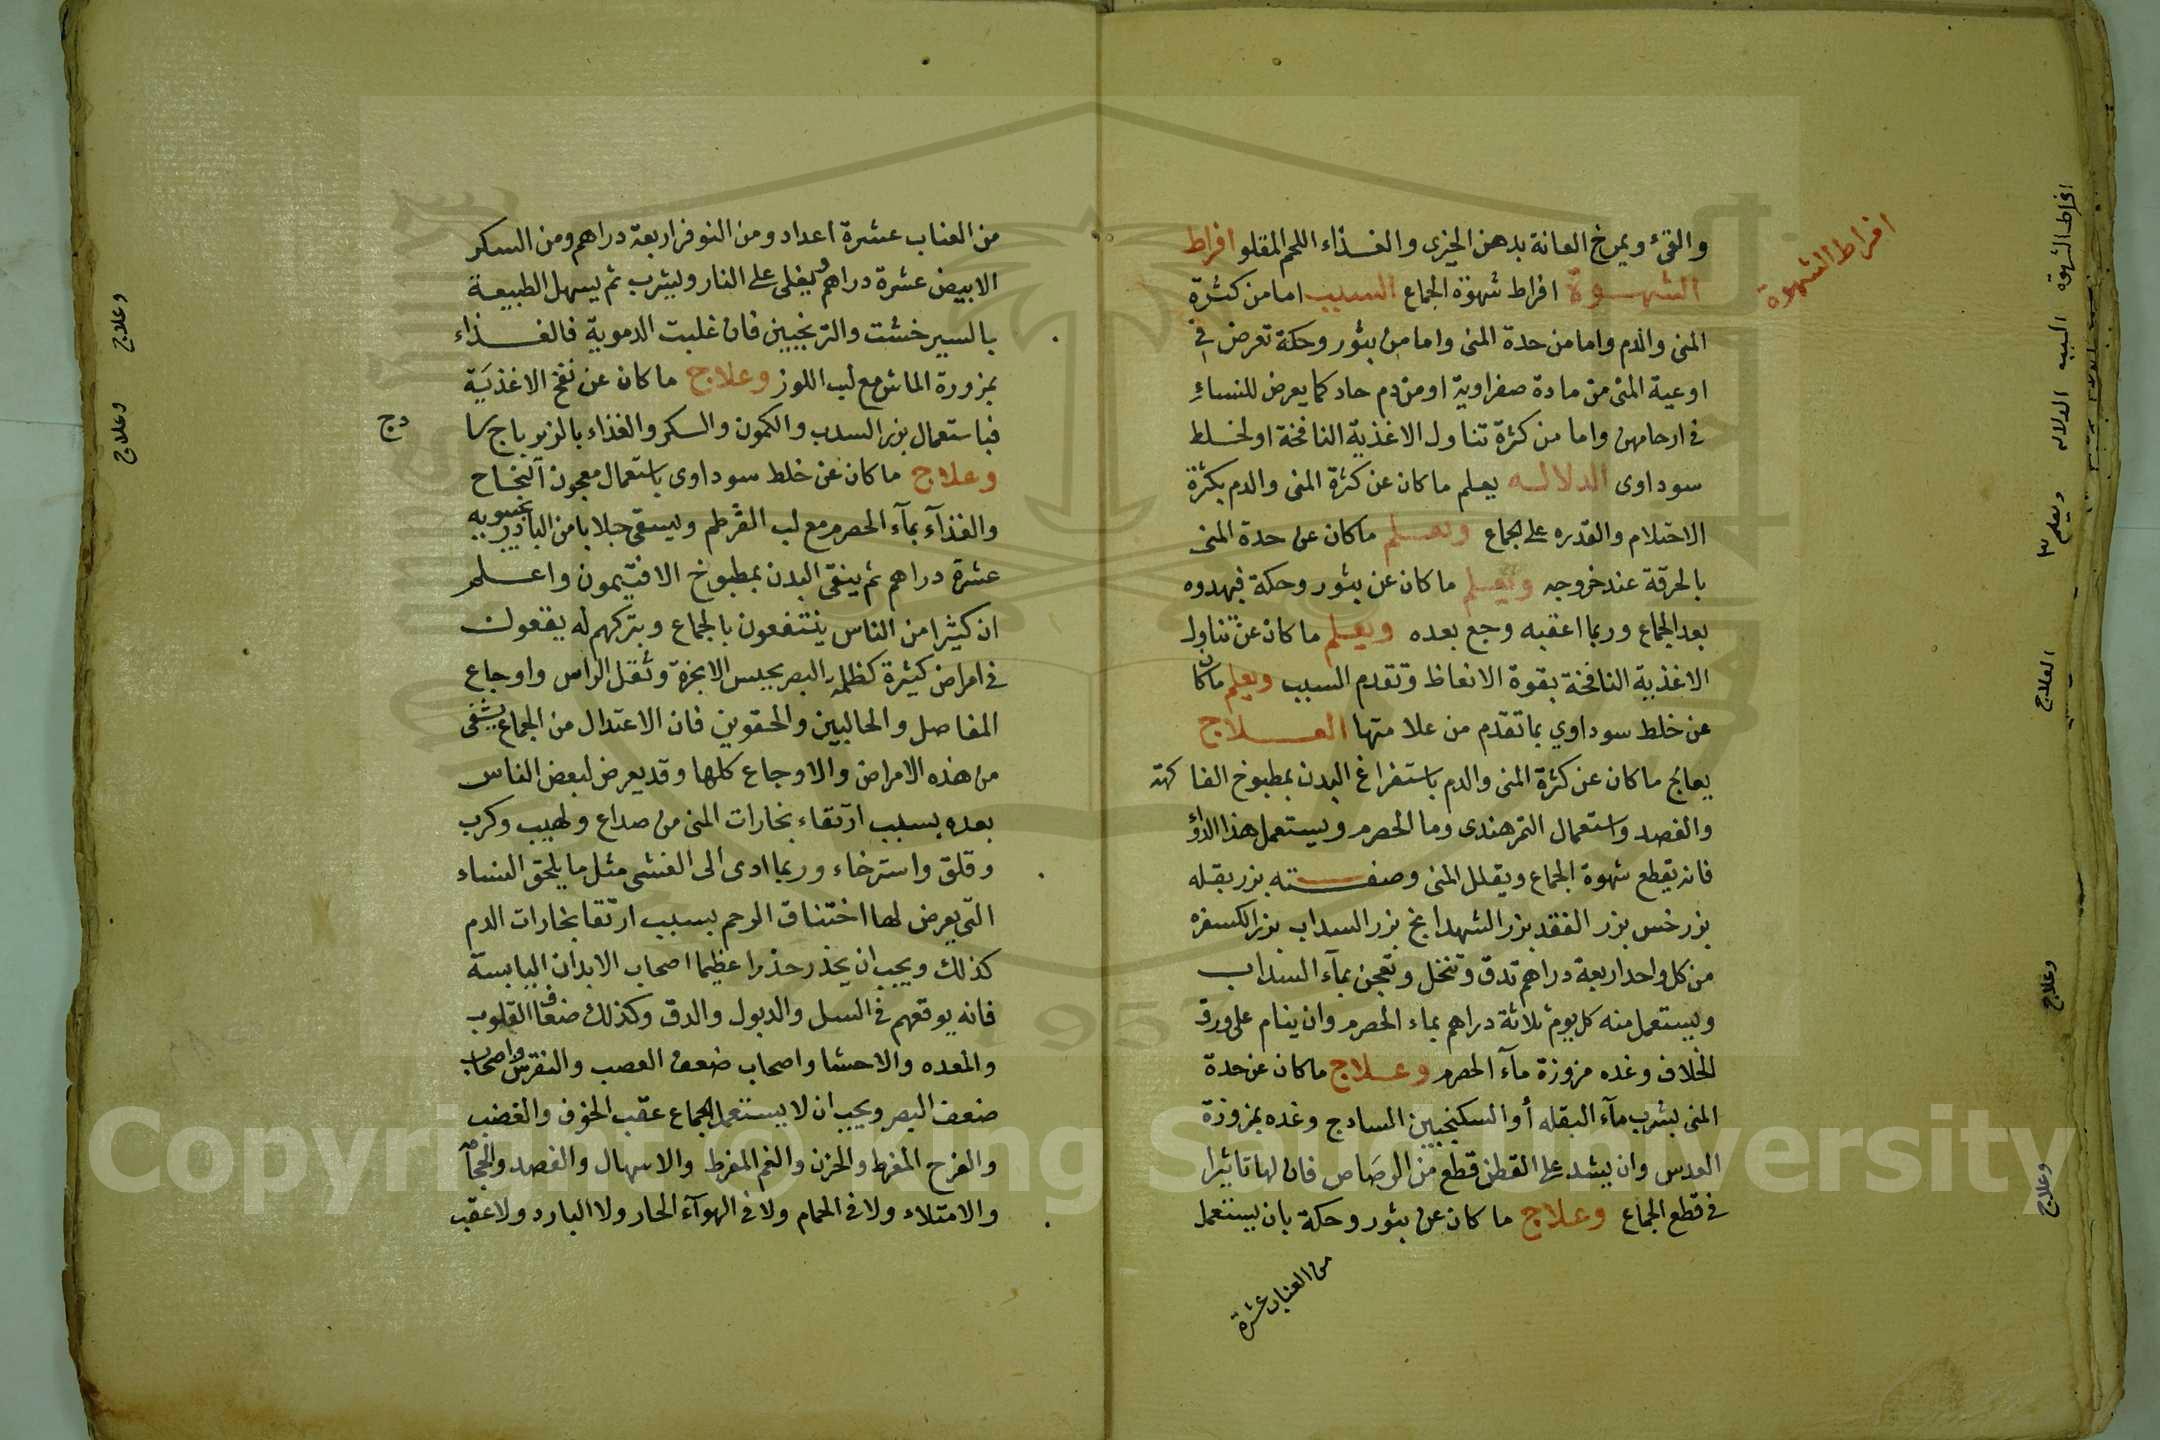 والقئ ويمرخ العانة بدهن الخيرى والغذاء اللحم المقلو افراط
الشهوة افراط شهوة الجماع السبب امامن كثرة
المنى والدم وامامن حدة المنى وامامن بثور وحكة تعرض فى
اوعية المنى من مادة صفراوية اومن دم حاد كما يعرض للنساء
فى ارحامهن واما من كثرة تناول الاغذية النافخة اولخلط
سوداوى الدلاله يعلم ماكان عن كثرة المنى والدم بكثرة
الاحتلام والقدره على الجماع ويعلم ماكان عن حدة المنى
بالحرقة عند خروجه ويعلم ماكان عن بثور وحكة فبهدوه
بعد الجماع وربما اعقبه وجع بعده ويعلم ماكان عن تناول
الاغذية النافخة بقوة الانعاظ وتقدم السبب ويعلم ماكان
عن خلط سوداوي بماتقدم من علامتها العلاج
يعالج ماكان عن كثرة المنى والدم باستفراغ البدن بمطبوخ الفاكهة
والفصد واستعمال التمرهندى وما الحصرم ويستعمل هذا الدواؤ
فانه يقطع شهوة الجماع ويقلل المنى وصفته بزر بقله
بزر خس بزر الفقد بزر الشهدانج بزر السداب بزر الكسفره
من كل واحد اربعة دراهم تدق وتنخل وتعجن بمآء السنداب
ويستعمل منه كل يوم ثلاثة دراهم بماء الحصرم وان ينام على ورق
الخلاف وغده مزوزة مآء الحصرم وعلاج ماكان عن حدة
المنى بشرب مآء البقله أو السكنجبين السادج وغده بمزوزة
العدس وان يشد على القطن قطع من الرصاص فان لها تاثيرا
فى قطع الجماع وعلاج ماكان عن بثور وحكة بان يستعمل
من العناب عشرة
افراط الشهوة
افراط الشهوة السبب الدلاله ويعلم ٣
العلاج
وعلاج
وعلاج
من العناب عشرة اعداد ومن النوفر اربعة دراهم ومن السكر
الابيض عشرة دراهم ويغلى على النار ويشرب ثم يسهل الطبيعة
بالسيرخشت والترنجبين فان غلبت الدموية فالغذاء
بمزورة الماش مع لب اللوز وعلاج ماكان عن نفخ الاغذية
فباستعمال بزر السدب والكمون والسكر والغذاء بالزيرباج
وعلاج ماكان عن خلط سوداوى باستعمال معجون النجاح
والغذآء بمآء الحصرم مع لب القرطم ويسقى جلابا من البادرنجبويه
عشرة دراهم ثم ينقى البدن بمطبوخ الافتيمون واعلم
ان كثيرا من الناس ينتفعون بالجماع وبتركهم له يقعون
فى امراض كثيرة كظلمة البصر بحبس الابخرة وثقل الراس واوجاع
المفاصل والحالبين والحقوين فان الاعتدال من الجماع يشفى
من هذه الامراض والاوجاع كلها وقد يعرض لبعض الناس
بعده بسبب ارتقاء بخارات المنى من صداع ولهيب وكرب
وقلق واسترخاء وربما ادى الى الغشى مثل ما يلحق النساء
التى يعرض لها اختناق الرحم بسبب ارتقا بخارات الدم
كذلك ويجب ان يحذر حذرا عظيما اصحاب الابدان اليابسة
فانه يوقعهم فى السل والدبول والدق وكذلك ضعفا القلوب
والمعده والاحشا واصحاب ضعف العصب والنقرس واصحاب
ضعف البصر ويجب ان لا يستعمل الجماع عقب الخوف والغضب
والفرح المفرط والحزن والغم المفرط والاسهال والفصد والحجامه
والامتلاء ولا فى الحمام ولا فى الهوآء الحار ولا البارد ولا عقب
وعلاج
وعلاج
Copyright © King Saud University
1957